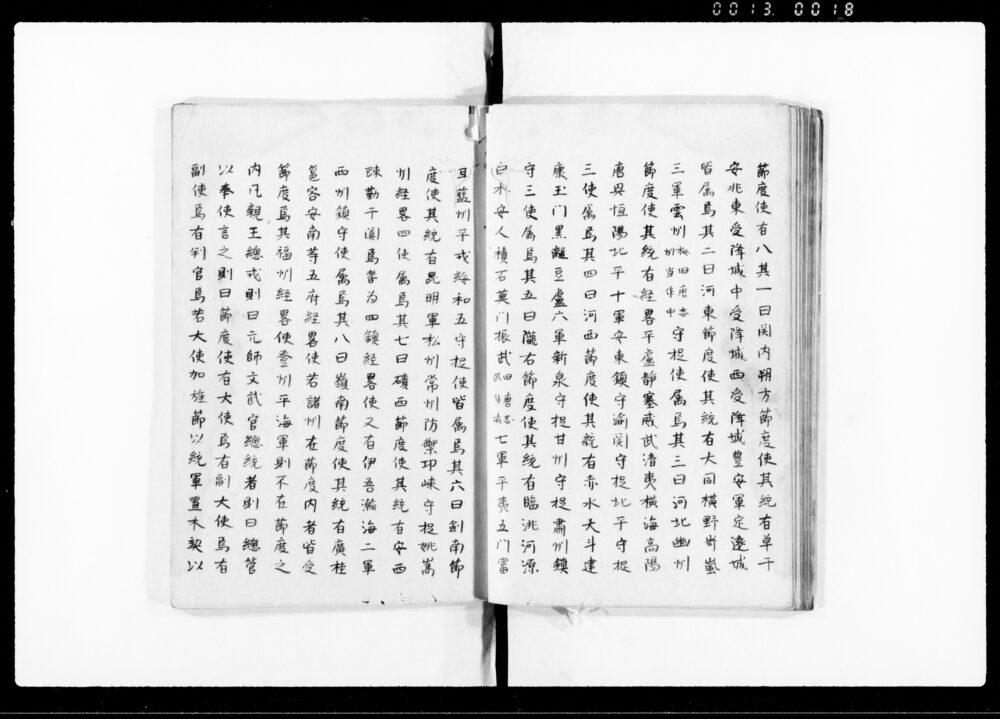 0013 0018
節度使有八其一曰関内朔方節度使其統有單于
安北東受降城中受降城西受降城豐安軍定遠城
皆属焉其二曰河東節度使其統有大同横野岢嵐
三軍雲州按旧唐志州当作中守捉使属焉其三曰河北幽州
節度使其統有經畧平盧静塞威武清夷横海高陽
唐興恒陽北平十軍安東鎮守渝関守捉北平守捉
三使属焉其四曰河西節度使其統有赤水大斗建
康玉门黒離豆盧六軍新泉守捉甘州守捉肅州鎮
守三使属焉其五曰隴右節度使其統有臨洮河源
白水安人積石莫门振武旧唐志武作威七軍平夷五门富
耳藍州平戎綏和五守捉使皆属焉其六曰劍南節
度使其統有昆明軍松州當州防禦卭崍守捉姚嶲
州経畧四使属焉其七曰磧西節度使其統有安西
疎勒于闐焉耆为四鎮経畧使又有伊吾瀚海二軍
西州鎮守使属焉其八曰嶺南節度使其統有廣桂
邕容安南等五府経畧使若諸州在節度内者皆受
節度焉其福州経畧使登州平海軍則不在節度之
内凡親王總戎則曰元帥文武官總統者則曰總管
以奉使言之則曰節度使有大使焉有副大使焉有
副使焉有判官焉若大使加旌節以統軍置木契以